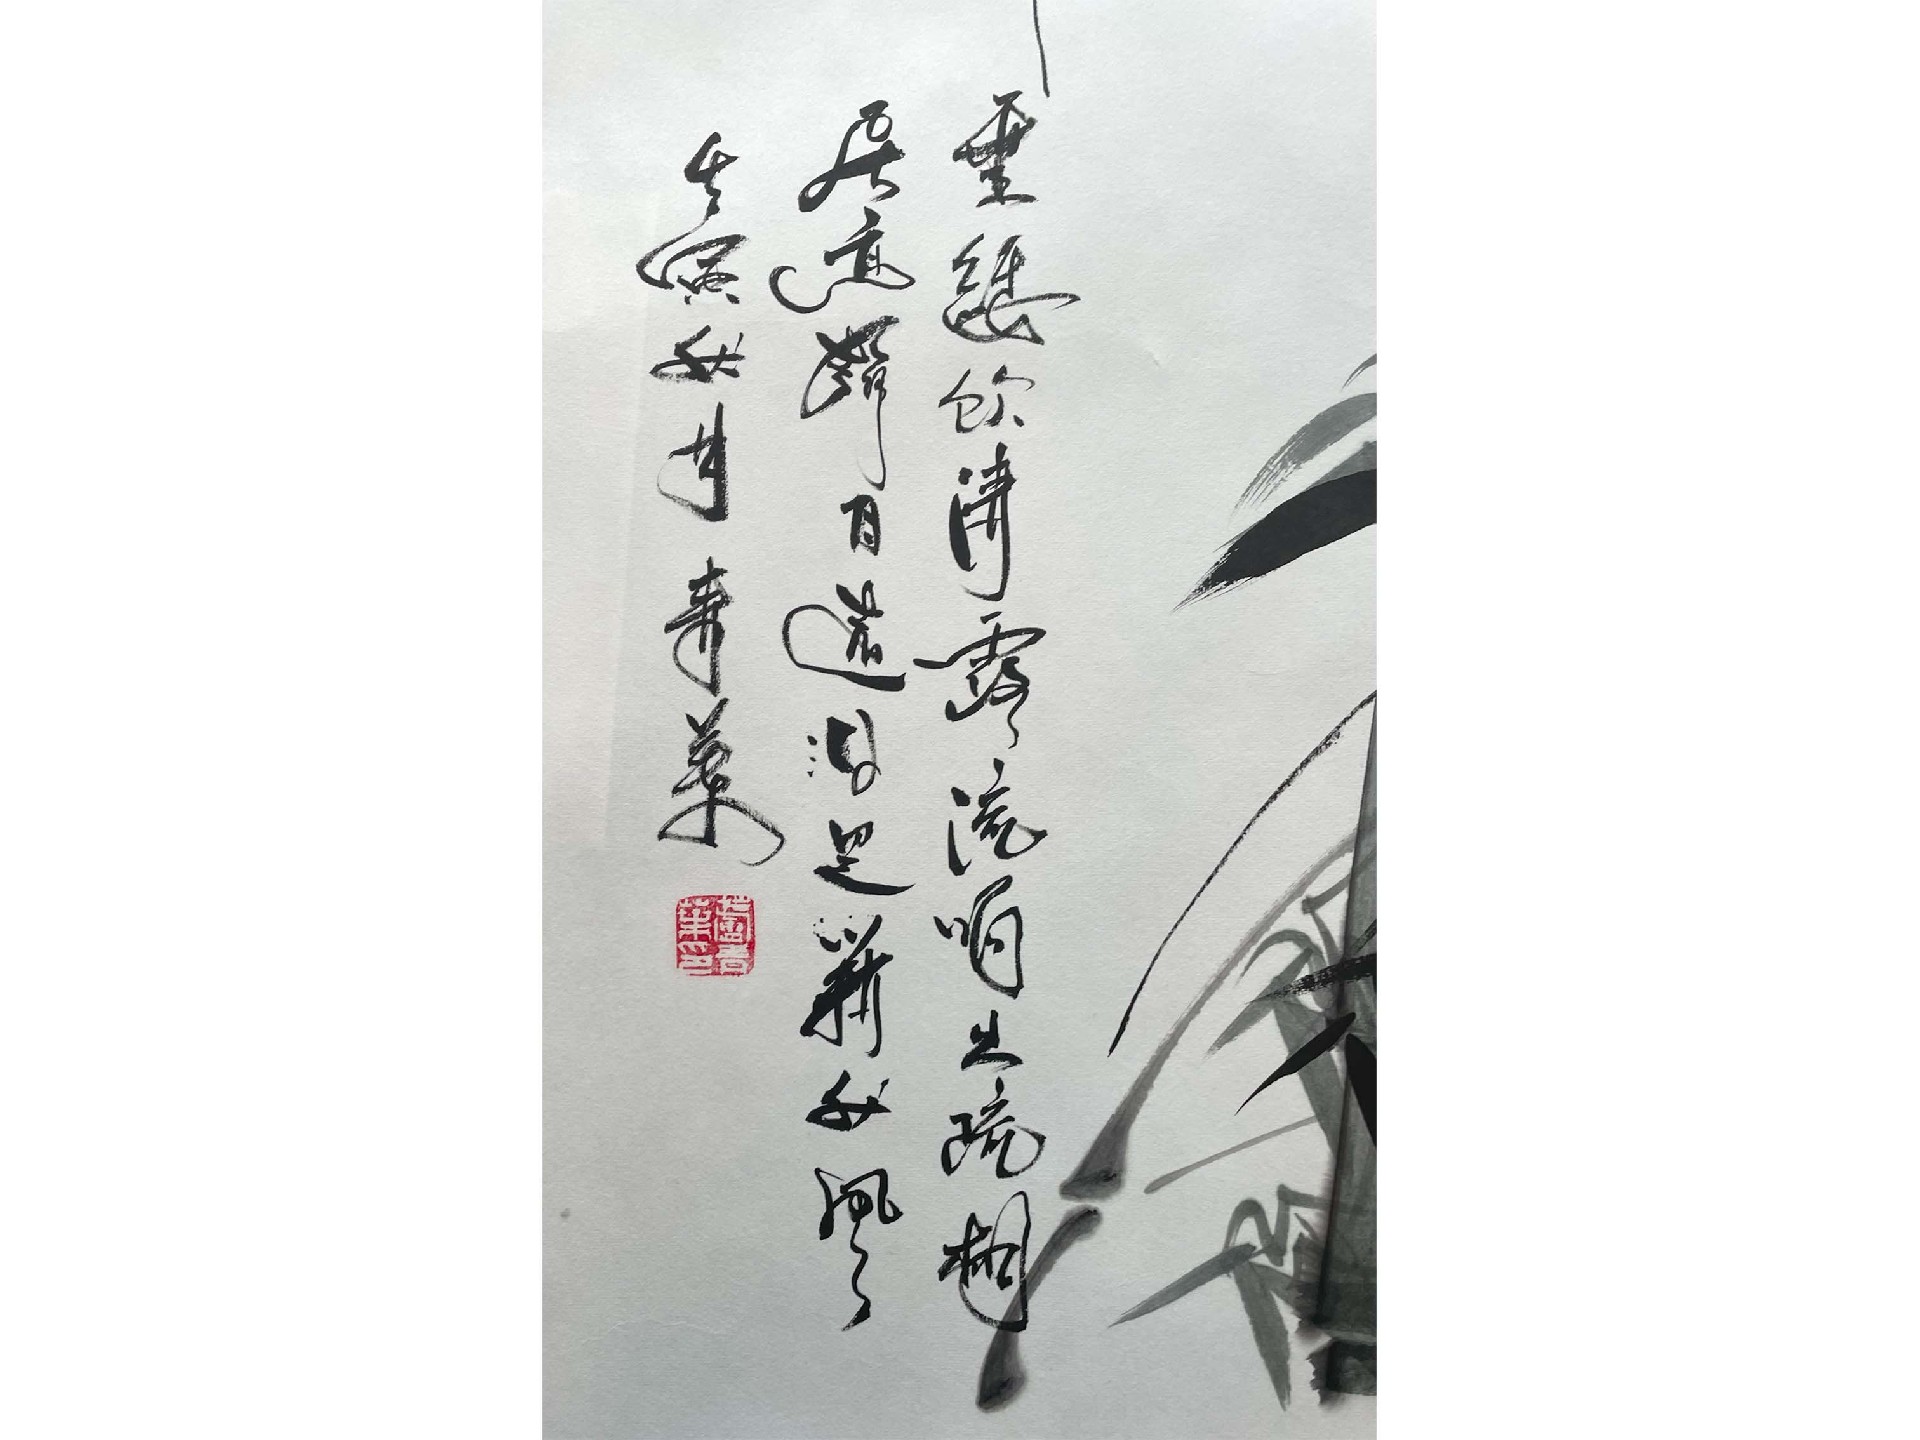 垂緌飲清露流響出疏桐
居高聲自遠非是藉秋風
壬寅秋月春葉